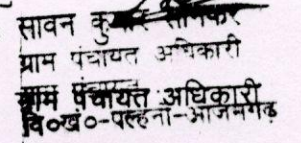 सावन कुमार सोनकर
ग्राम पंचायत अधिकारी
ग्राम पंचायत अधिकारी
वि०ख०-पल्हना-आजमगढ़